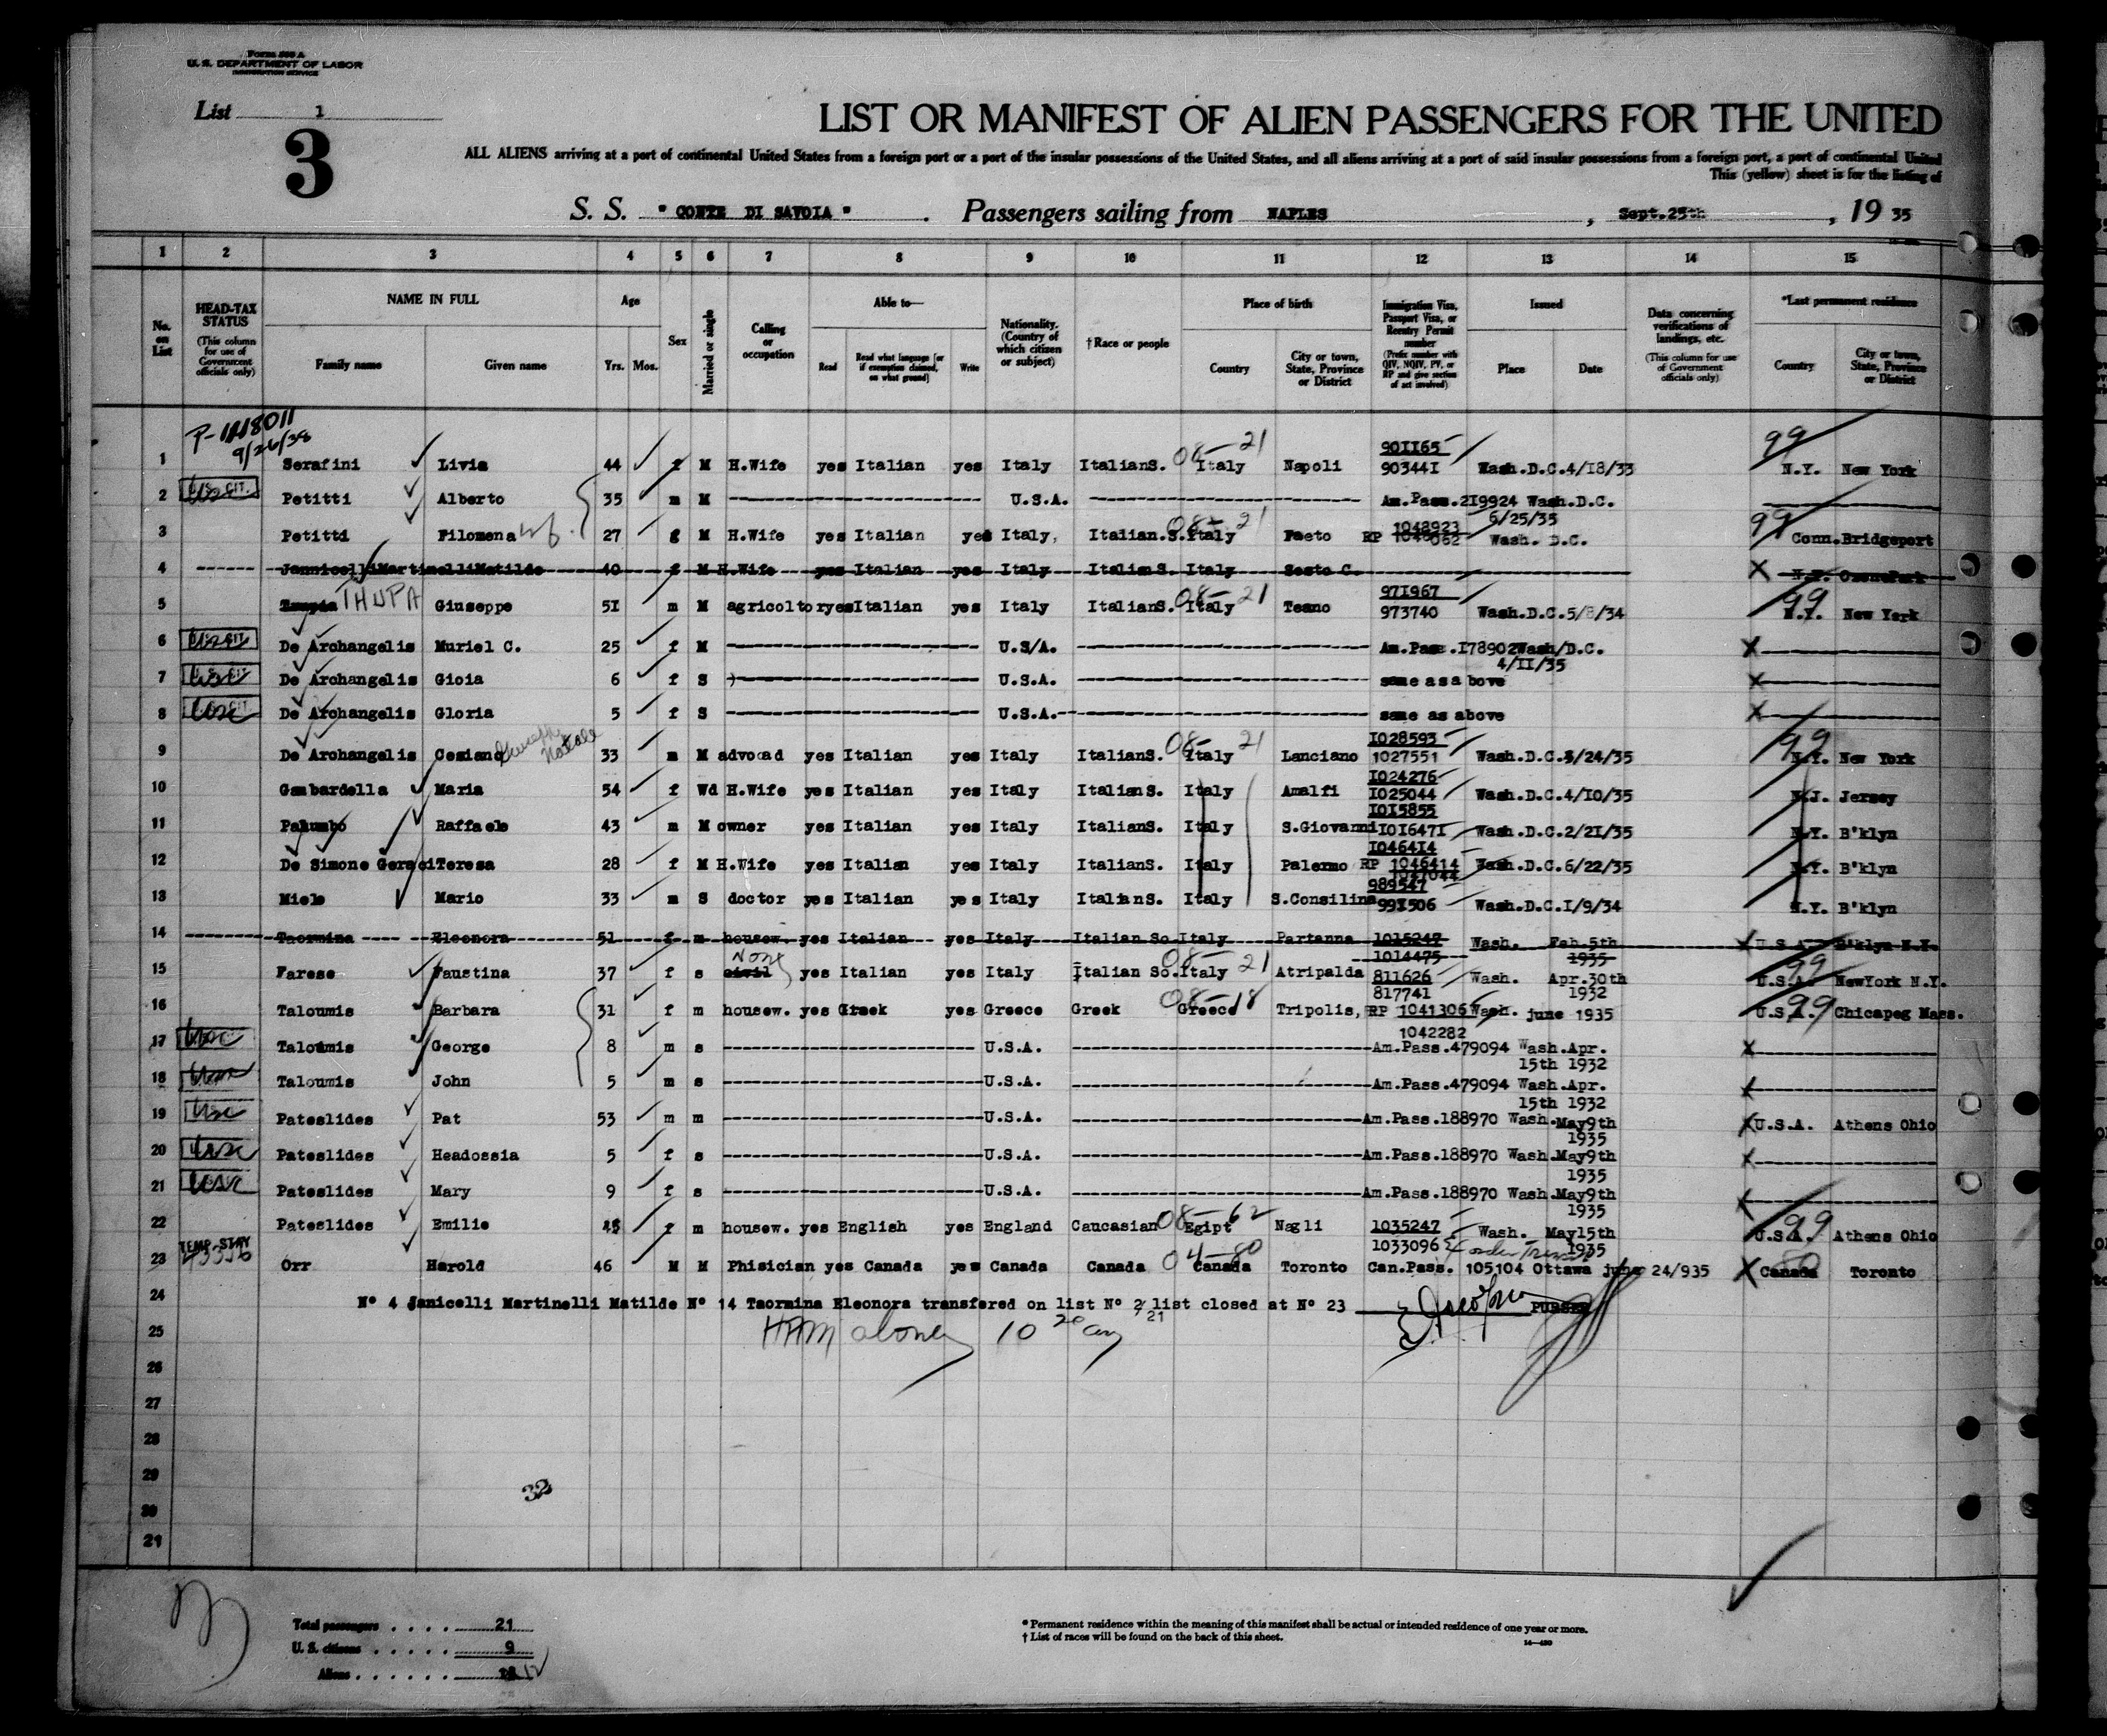 Form 500 A
U. S. DEPARTMENT OF LABOR
IMMIGRATION SERVICE
List 1
3
LIST OR MANIFEST OF ALIEN PASSENGERS FOR THE UNITED
ALL ALIENS arriving at a port of continental United States from a foreign port or a port of the insular possessions of the United States, and all aliens arriving at a port of said insular possessions from a foreign port, a port of continental United
This (yellow) sheet is for the listing of
S. S. "CONTE DI SAVOIA". Passengers sailing from NAPLES, Sept.25th, 19 35
1 2 3 4 5 6 7 8 9 10 11 12 13 14 15
No. on List
HEAD-TAX STATUS (This column for use of Government officials only)
NAME IN FULL Family name Given name
Age Yrs. Mos.
Sex
Married or single
Calling or occupation
Able to— Read Read what language [or if exemption claimed, on what ground] Write
Nationality. (Country of which citizen or subject)
†Race or people
Place of birth Country City or town, State, Province or District
Immigration Visa, Passport Visa, or Reentry Permit number (Prefix number with QIV, NQIV, PV, or RP and give section of act involved)
Issued Place Date
Data concerning verifications of landings, etc. (This column for use of Government officials only)
*Last permanent residence Country City or town, State, Province or District
P-1118011
9/26/38
901165 99
1 Serafini Livia 44 f M H.Wife yes Italian yes Italy ItalianS. 08-21 Italy Napoli 903441 Wash.D.C.4/18/33 N.Y. New York
2 U.S. CIT. Petitti Alberto 35 m M U.S.A. Am.Pass.219924 Wash.D.C.
1048923 6/25/35 99
3 Petitti Filomena wf 27 f M H.Wife yes Italian yes Italy, Italian.S. 08-21 Italy Faeto RP Wash. D.C. Conn.Bridgeport
4 Jannicelli Martinelli Matilde 40 f M H.Wife yes Italian yes Italy ItalianS. Italy Sesto C. X N.Y. OzonePark
971967 99
5 THUPA Giuseppe 51 m M agricoltore yes Italian yes Italy ItalianS. 08-21 Italy Teano 973740 Wash.D.C.5/8/34 N.Y. New York
6 De Archangelis Muriel C. 25 f M U.S/A. Am.Pass.178902 Wash/D.C. X
4/11/35
7 De Archangelis Gioia 6 f S U.S.A. same as a bove X
8 usc De Archangelis Gloria 5 f S U.S.A. same as above X
Giuseppe Natale 1028593 99
9 De Archangelis Cesiano 33 m M advocad yes Italian yes Italy ItalianS. 08-21 Italy Lanciano 1027551 Wash.D.C.4/24/35 N.Y. New York
1024276
10 Gambardella Maria 54 f Wd H.Wife yes Italian yes Italy ItalianS. Italy Amalfi 1025044 Wash.D.C.4/10/35 N.J. Jersey
1015855
11 Palumbo Raffaele 43 m M owner yes Italian yes Italy ItalianS. Italy S.Giovanni 1016471 Wash.D.C.2/21/35 N.Y. B'klyn
1046414
12 De Simone Geraci Teresa 28 f M H.Wife yes Italian yes Italy ItalianS. Italy Palermo RP 1046414 Wash.D.C.6/22/35 N.Y. B'klyn
1047044
989547
13 Miele Mario 33 m S doctor yes Italian yes Italy ItalianS. Italy S.Consilina 991506 Wash.D.C.1/9/34 N.Y. B'klyn
14 Taormina Eleonora 51 f m housew. yes Italian yes Italy Italian So.Italy Partanna 1015247 Wash. Feb 5th X U.S.A. B'klyn N.Y.
None 1014475 1935 99
15 Farese Faustina 37 f s civil yes Italian yes Italy Italian So. 08-21 Italy Atripalda 811626 Wash. Apr.30th U.S.A. NewYork N.Y.
817741 1932
16 Taloumis Barbara 31 f m housew. yes Greek yes Greece Greek 08-18 Greece Tripolis, RP 1041306 Wash. june 1935 U.S.A. 99 Chicapeg Mass.
1042282
17 usc Taloumis George 8 m s U.S.A. Am.Pass.479094 Wash.Apr. X
15th 1932
18 Taloumis John 5 m s U.S.A. Am.Pass.479094 Wash.Apr. X
15th 1932
19 usc Pateslides Pat 53 m m U.S.A. Am.Pass.188970 Wash.May9th X U.S.A. Athens Ohio
1935
20 usc Pateslides Headossia 5 f s U.S.A. Am.Pass.188970 Wash.May9th X
1935
21 usc Pateslides Mary 9 f s U.S.A. Am.Pass.188970 Wash.May9th X
1935
22 Pateslides Emilie f m housew. yes English yes England Caucasian 08-62 Egipt Nagli 1035247 Wash. May15th U.S.A. 99 Athens Ohio
TEMP. STAY 1033096 1935
23 Orr Harold 46 M M Phisician yes Canada yes Canada Canada 04-80 Canada Toronto Can.Pass. 105104 Ottawa june 24/935 X Canada 80 Toronto
24 N° 4 Janicelli Martinelli Matilde N° 14 Taormina Eleonora transfered on list N° 2/ list closed at N° 23 PURSER
21
25 10 20
26
27
28
29
30
21
32
Total passengers . . . . 21
U. S. citizens . . . . . 9
Aliens . . . . . . 12
* Permanent residence within the meaning of this manifest shall be actual or intended residence of one year or more.
† List of races will be found on the back of this sheet.
14—480